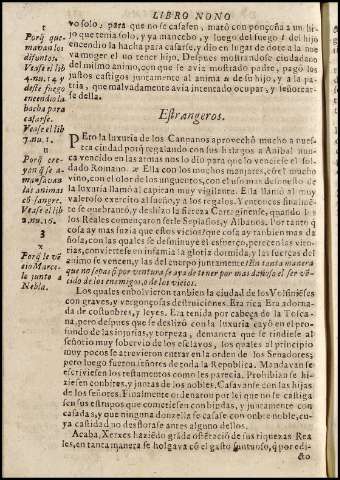 LIBRO NONO
1
Porq̃ que-
mavan los
difuntos.
Vease el lib
4. nu. 14 y
deste fuego
encendio la
hacha para
casarse.
Vease el lib
7. nu. 1.
Porq̃ cre-
yan q̃ se a-
mansavan
las animas
cõ sangre.
Vease el lib
2. nu. 10.
3
x
Porq̃ le vẽ
cio Marce-
lo junto a
Nobla.
vo solo: para que no se casasen, matò con ponçoña a un hi-
jo que tenia solo, y ya mancebo, y luego del fuego del hijo
encendio la hacha para casarse, y dio en lugar de dote a la nue
va muger el no tener hijo. Despues mostrandose ciudadano
del mismo animo, con que se avia mostrado padre, pagó los
justos castigos juntamente al anima de su hijo, y a la pa-
tria, que malvadamente avia intentado ocupar, y enseñorear-
se della.
Estrangeros.
PEro la luxuria de los Campanos aprovechò mucho a nues-
tra ciudad porq̃ regalando con sus halagos a Anibal nun-
ca vencido en las armas nos lo dio para que lo venciese el sol-
dado Romano. Ella con los muchos manjares, cõ el mucho
vino, con el olor de los unguentos, con el uso mas deshonesto de
la luxuria llamò al capitan muy vigilante. Ella llamò al muy
valeroso exercito al sueño, y a los regalos. Y entonces finalmẽ-
te se quebrantò, y deshizo la fiereza Cartaginense, quando los
los Reales començaron ser le Seplasios, y Albanos. Por tanto q̃
cosa ay mas suzia que estos vicios? que cosa ay tambien mas da
ñosa, con las quales se desminuye el esfuerço, perecen las vito-
rias, convierte se en infamia la gloria dormida, y las fuerças del
animo se vencen, y las del cuerpo juntamente? En tanta manera
que no sepas q̃ por ventura se aya de tener por mas dañoso el ser vẽ-
cido de los enemigos, o de los vicios.
Los quales enbolvieron tanbien la ciudad de los Volsinieses
con graves, y vergonçosas destruiciones. Era rica Era adorna-
da de costunbres, y leyes. Era tenida por cabeça de la Tosca-
na, pero despues que se deslizò con la luxuria cayò en el pro-
fundo de las injurias, y torpeza, demanera que se rindiese al
señorio muy sobervio de los esclavos, los quales al principio
muy pocos se atrevieron entrar en la orden de los Senadores;
pero luego fueron señores de toda la Republica. Mandavan se
escriviesen los testamentos como les parecia. Prohibian se hi-
ziesen conbites, y juntas de los nobles. Casavanse con las hijas
de los señores. Finalmente ordenaron por lei que no se castiga
sen sus estupros que cometiesen con biudas, y juntamente con
casadas, y que ninguna donzella se casase con onbre noble, cu-
ya castidad no desflorase antes alguno dellos.
Acaba, Xerxes haziẽdo grãda ostẽtaciõ de sus riquezas Rea
les, en tanta manera se holgava cõ el gasto suntuoso, q̃ por edi-
cto